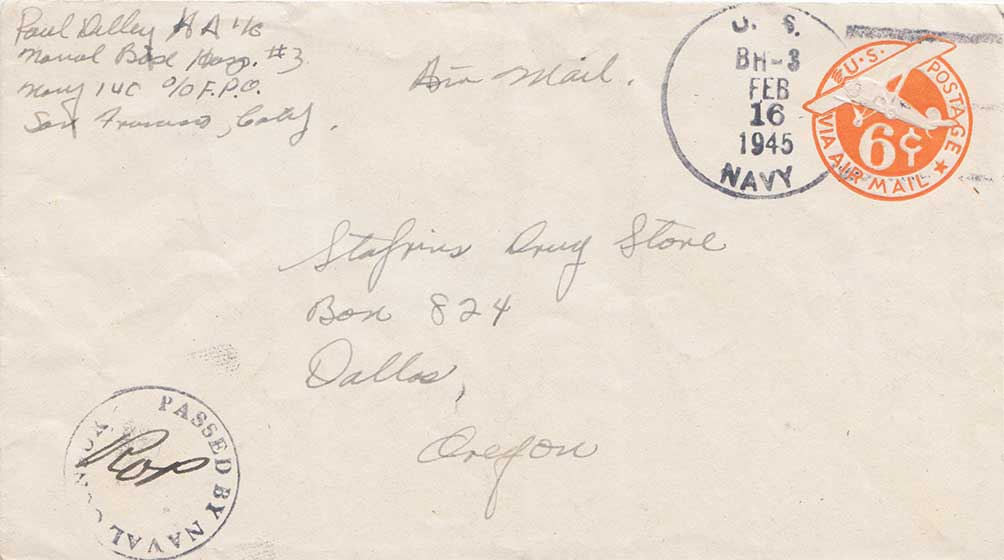 Paul Dilley HA 1/c
Naval Base Hosp. #3
Navy 140 c/o F.P.O.
San Francisco, Calif.
Air Mail.
U. S.
BH-3
FEB
16
1945
NAVY
U.S. POSTAGE
6¢
VIA AIR MAIL
Stafrins Drug Store
Box 824
Dallas,
Oregon
PASSED BY NAVAL CENSOR